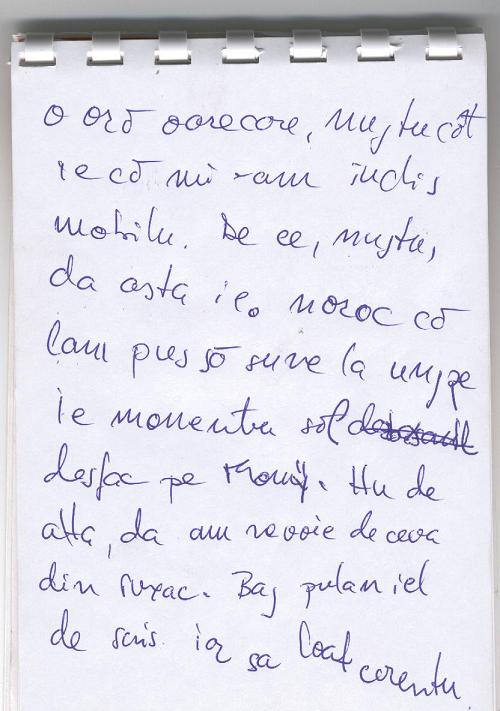 o oră oarecare, nuștu cât
ie că mi-am indis
mobilu. De ce, nuștu,
da asta ie. noroc că
lam pus să sune la unșpe
ie momentu săl
desfac pe Nu de
alta, da am nevoie de ceva
din ruxac. Baș pulan iel
de scris iar sa loat corentu.